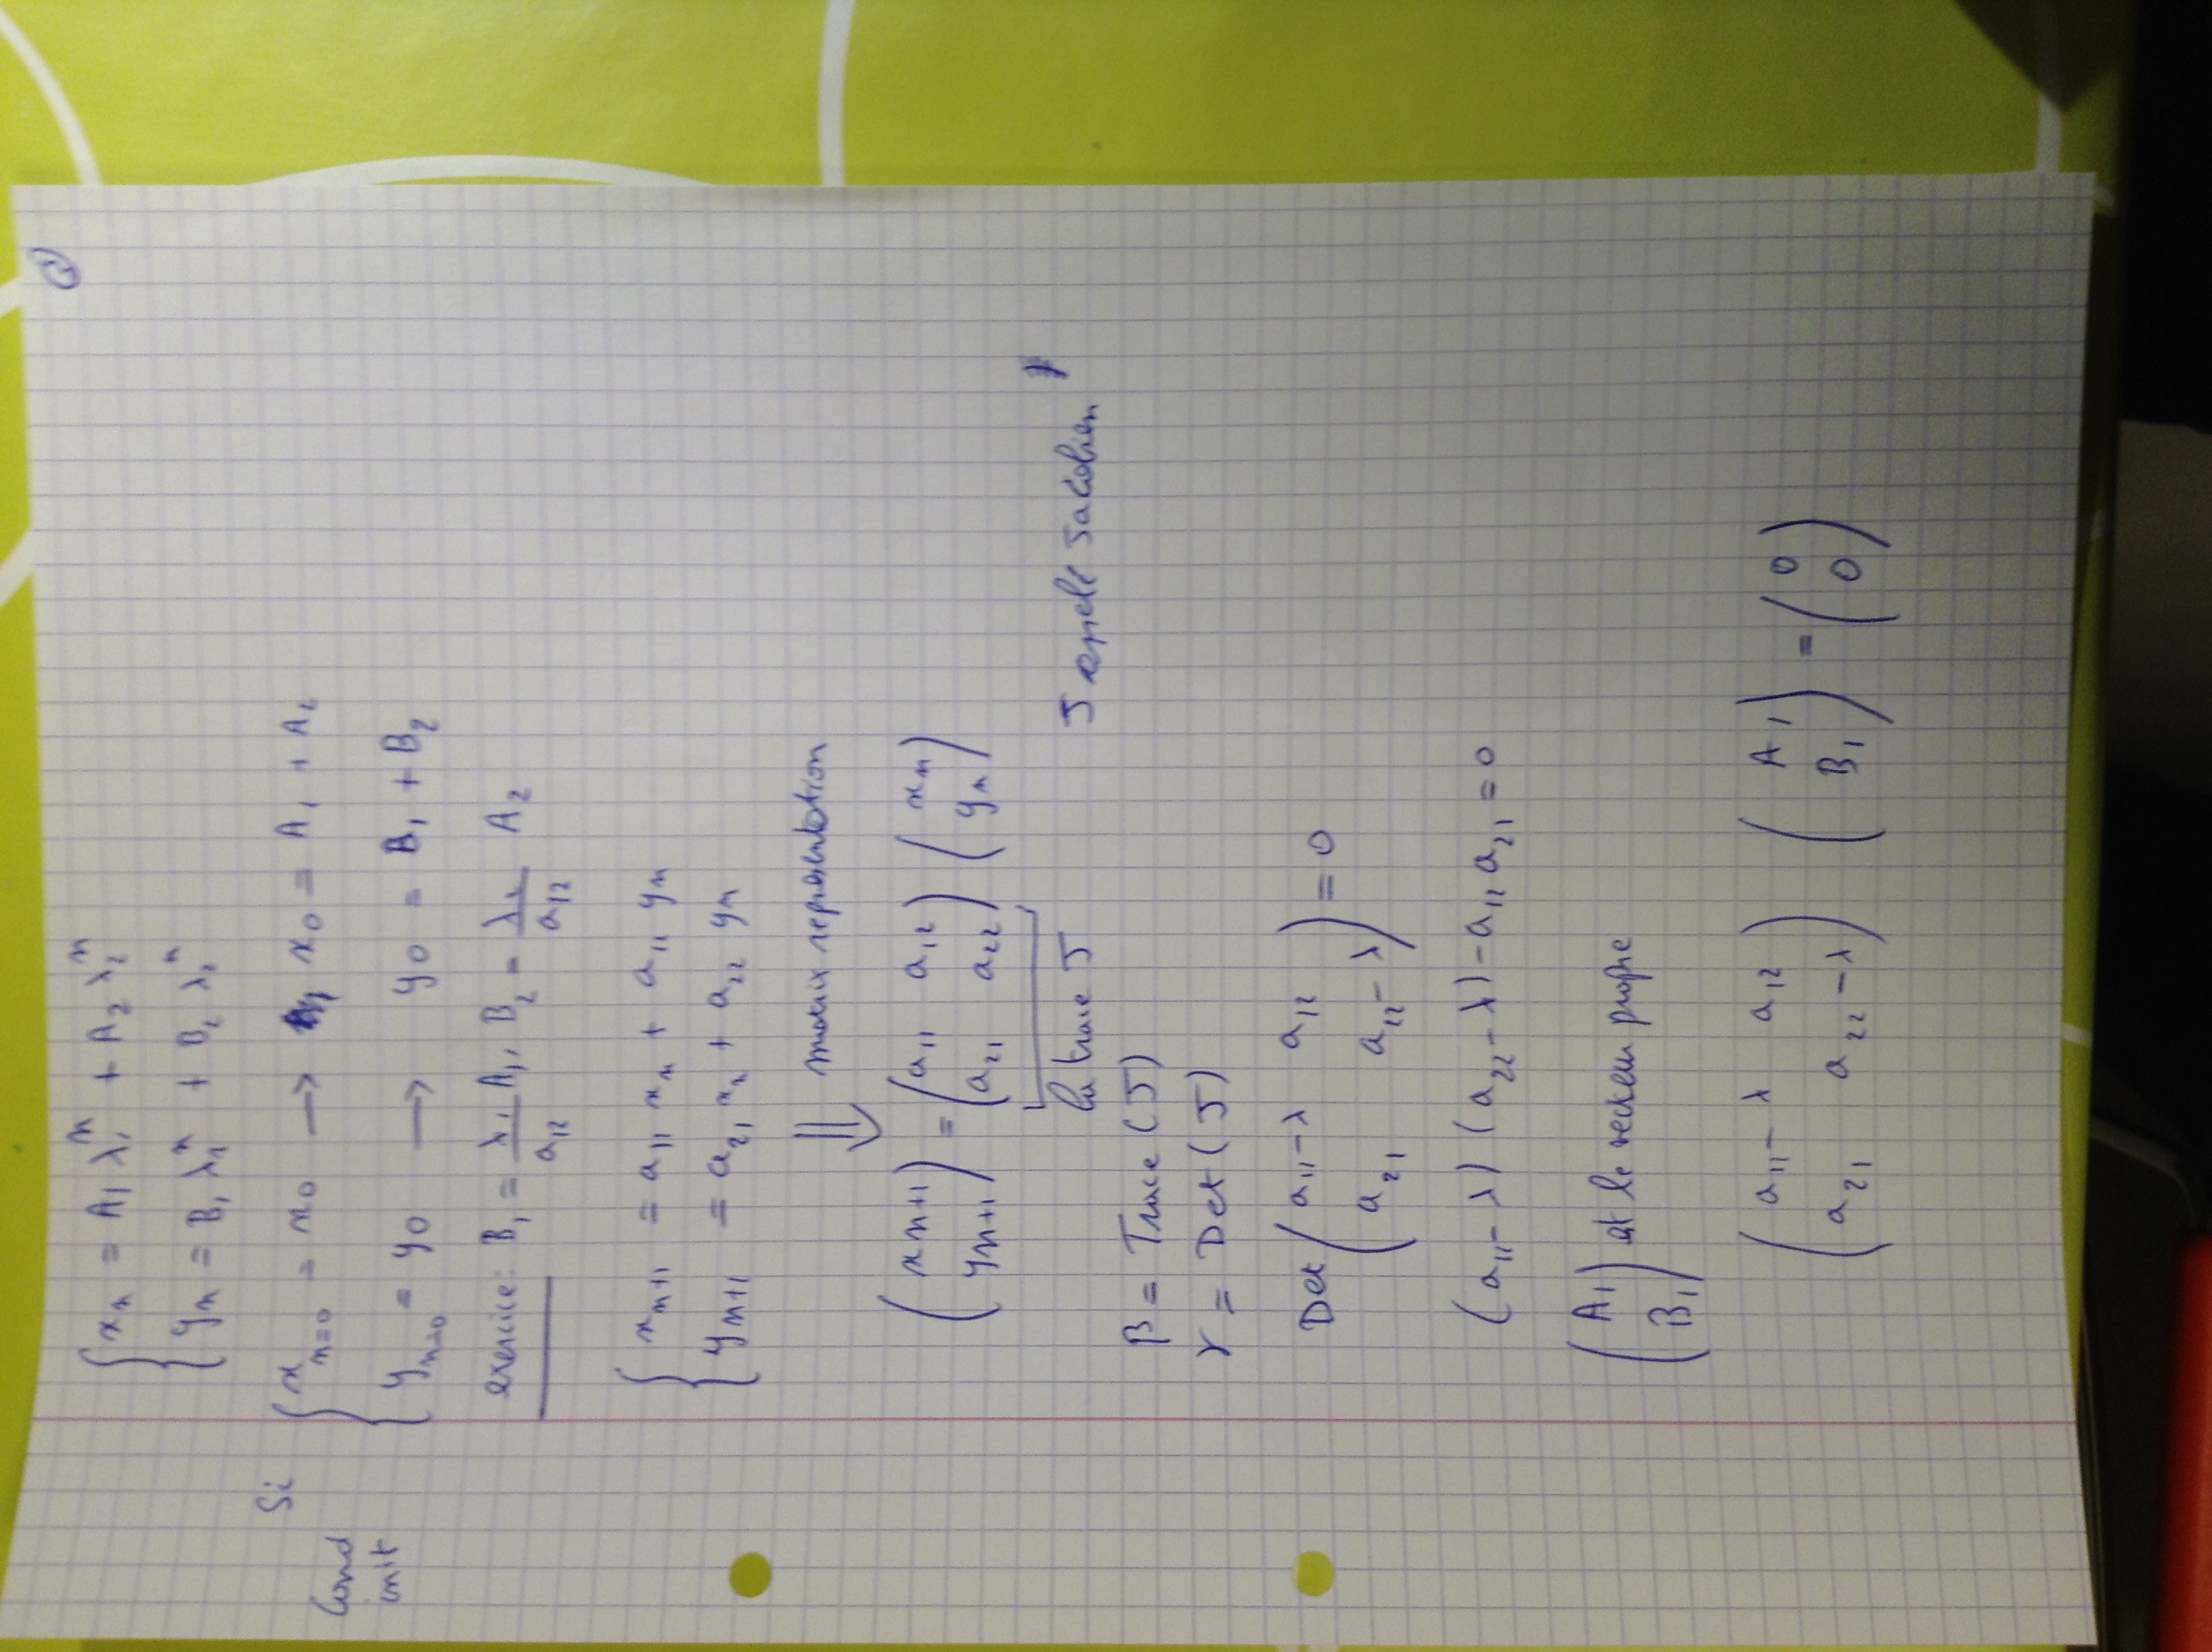 ②
{ xₙ = A₁ λ₁ⁿ + A₂ λ₂ⁿ
{ yₙ = B₁ λ₁ⁿ + B₂ λ₂ⁿ
Si { xₙ₌₀ = x₀ → x₀ = A₁ + A₂
Cond init { yₙ₌₀ = y₀ → y₀ = B₁ + B₂
exercice: B₁ = λ₁/a₁₂ A₁, B₂ = λ₂/a₁₂ A₂
{ xₙ₊₁ = a₁₁ xₙ + a₁₁ yₙ
{ yₙ₊₁ = a₂₁ xₙ + a₂₂ yₙ
⇓ matrix representation
( xₙ₊₁ ) = ( a₁₁ a₁₂ ) ( xₙ )
( yₙ₊₁ ) ( a₂₁ a₂₂ ) ( yₙ )
la trace J
J appelé Jacobien
β = Trace (J)
γ = Det (J)
Det ( a₁₁-λ a₁₂ ) = 0
( a₂₁ a₂₂-λ )
(a₁₁-λ) (a₂₂-λ) - a₁₂ a₂₁ = 0
( A₁ ) est le vecteur propre
( B₁ )
( a₁₁-λ a₁₂ ) ( A₁ ) = ( 0 )
( a₂₁ a₂₂-λ ) ( B₁ ) ( 0 )